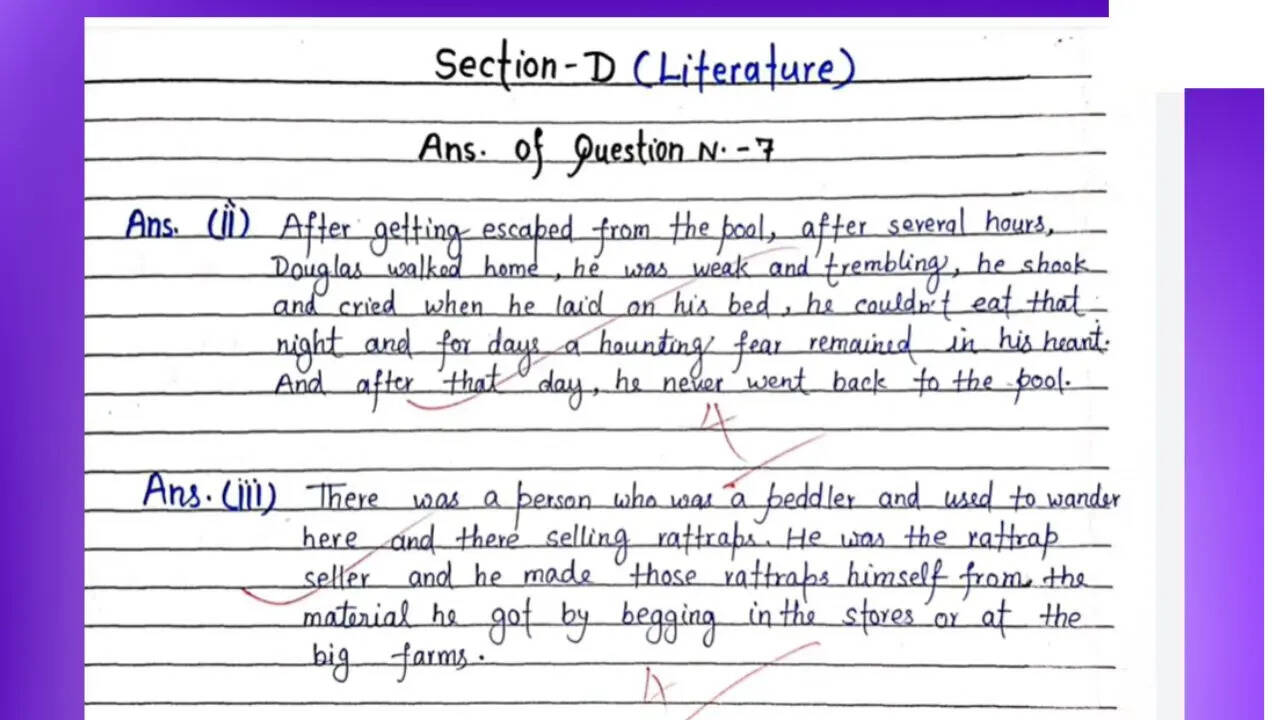 Section-D (Literature)
Ans. of Question N.-7
Ans. (ii) After getting escaped from the pool, after several hours,
Douglas walked home, he was weak and trembling, he shook
and cried when he laid on his bed, he couldn't eat that
night and for days a haunting fear remained in his heart.
And after that day, he never went back to the pool.
4
Ans. (iii) There was a person who was a peddler and used to wander
here and there selling rattraps. He was the rattrap
seller and he made those rattraps himself from the
material he got by begging in the stores or at the
big farms.
4